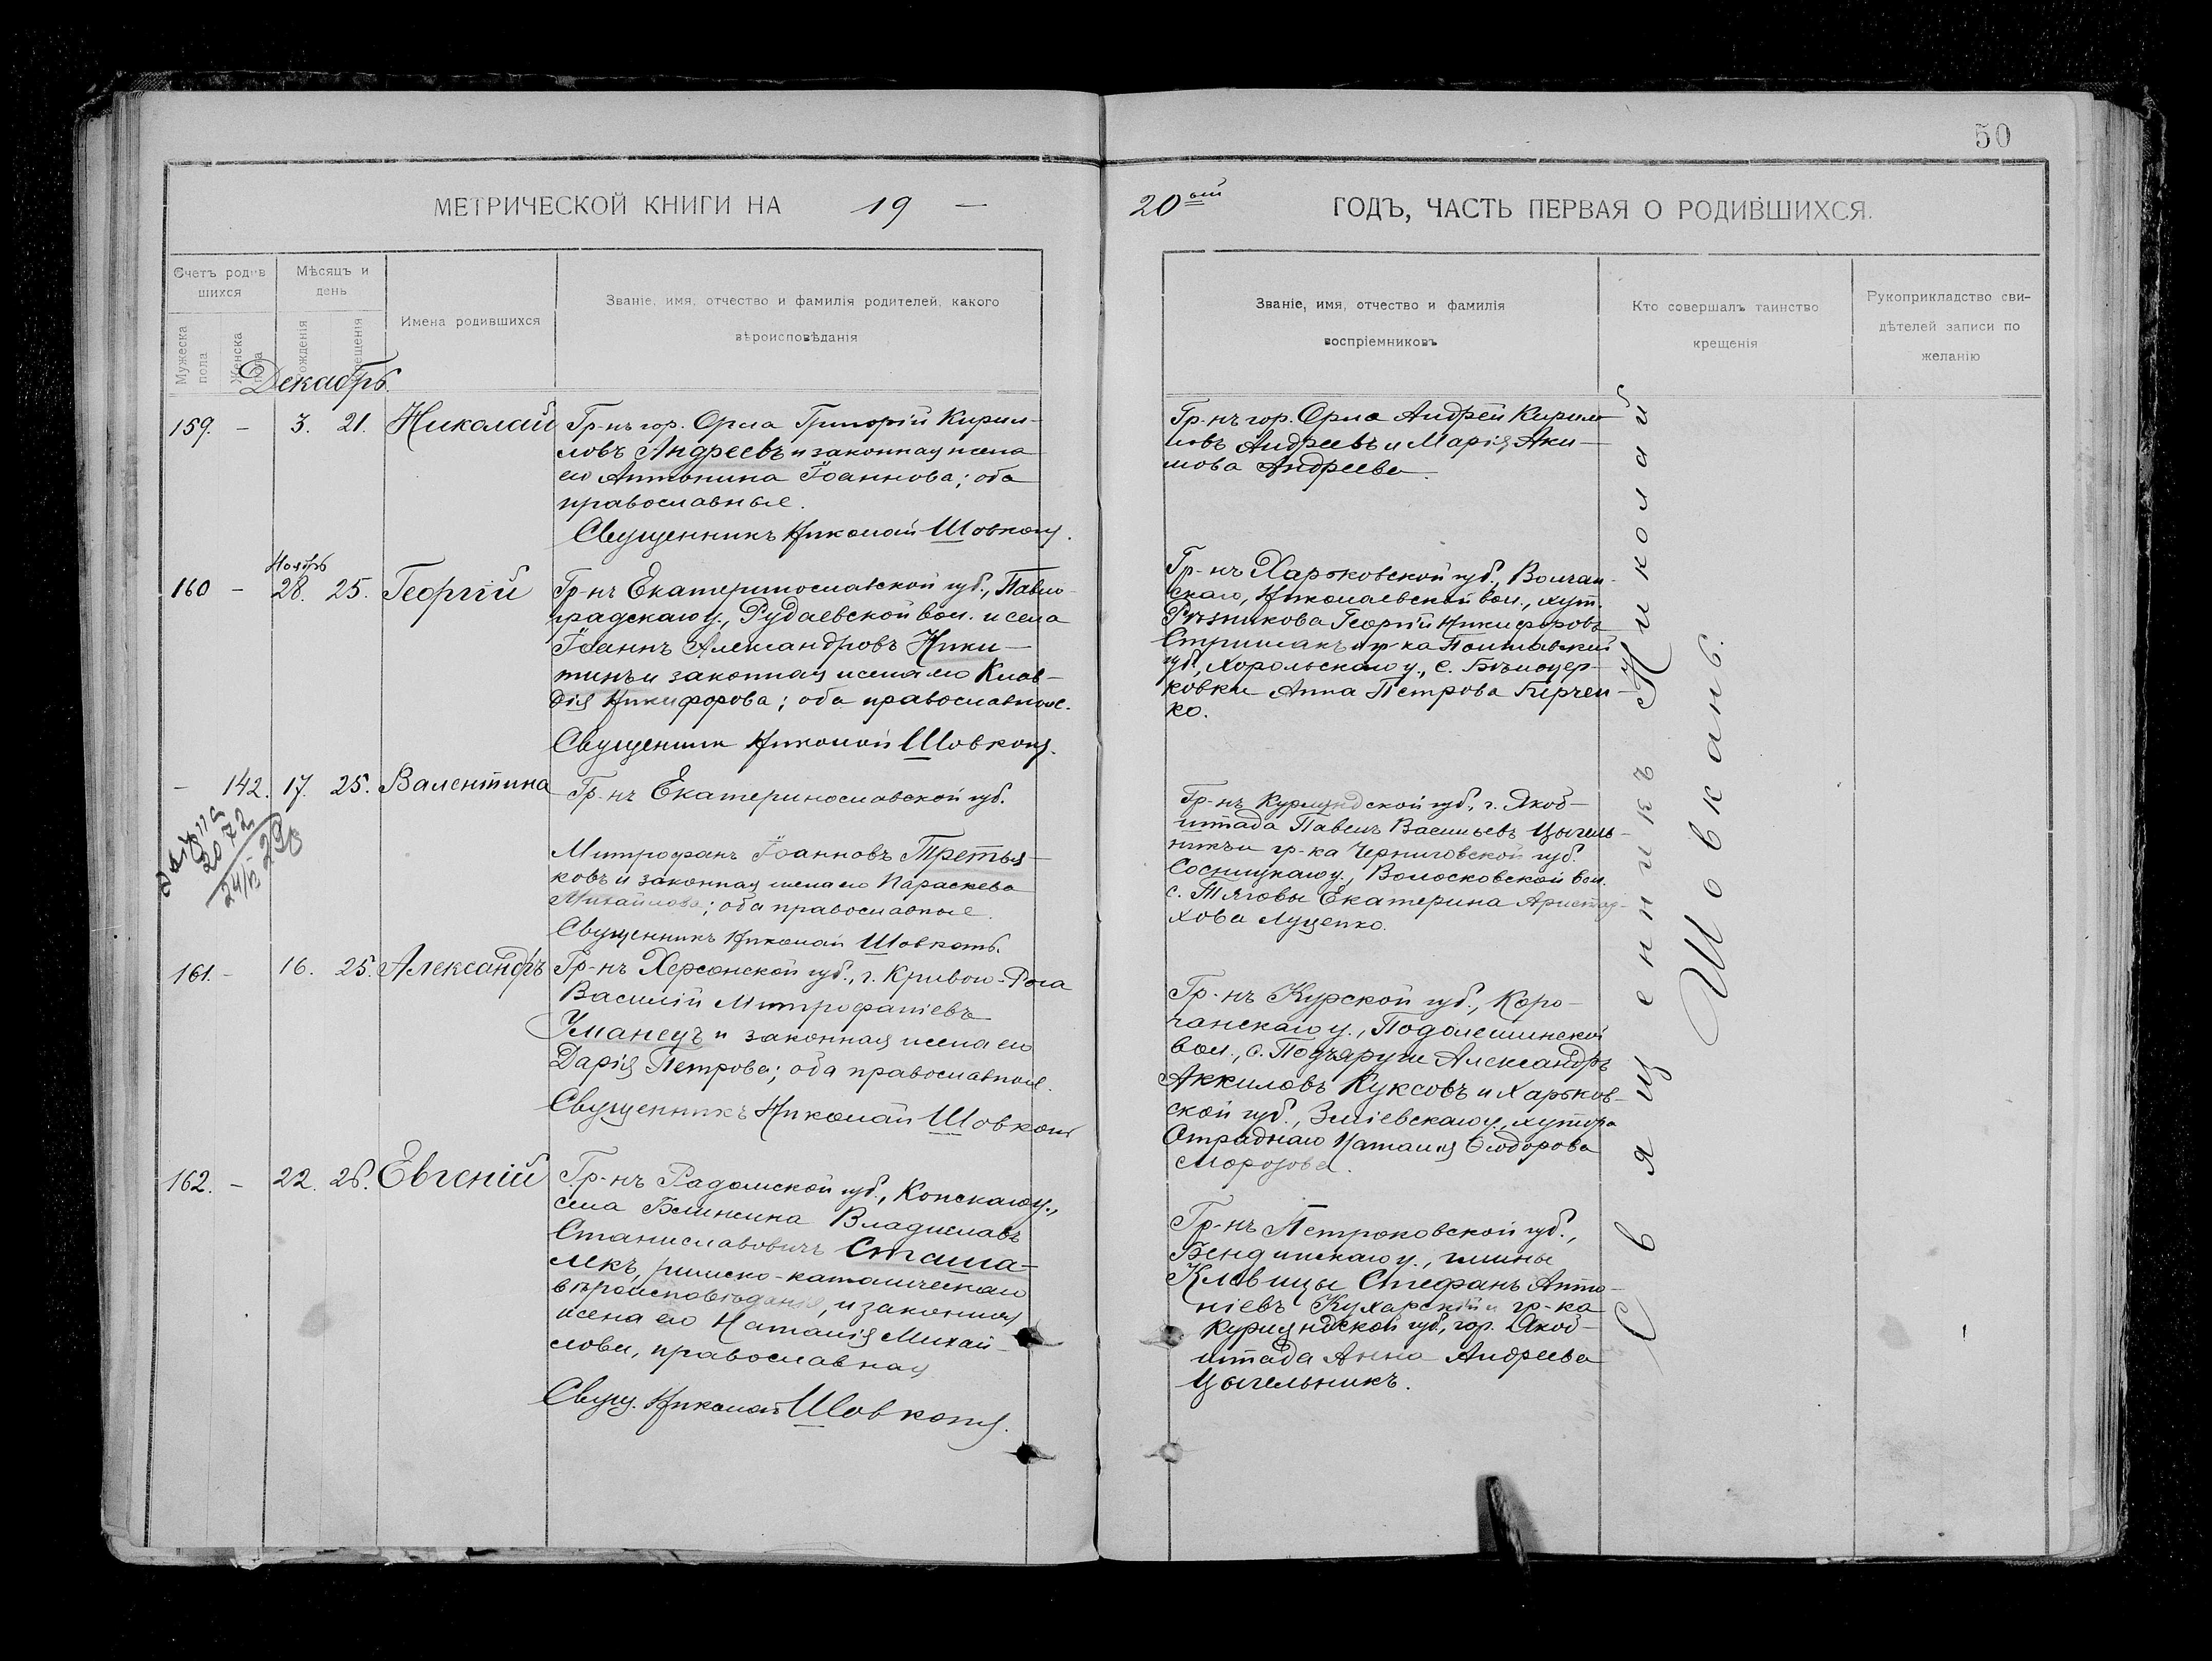 50
МЕТРИЧЕСКОЙ КНИГИ НА 19 —
20ый ГОДЪ, ЧАСТЬ ПЕРВАЯ О РОДИВШИХСЯ.
Счетъ родив
шихся
Мужеска пола
Женска пола
Мѣсяцъ и
день
Рожденія
Крещенія
Имена родившихся
Званіе, имя, отчество и фамилія родителей, какого
вѣроисповѣданія
Званіе, имя, отчество и фамилія
воспріемниковъ
Кто совершалъ таинство
крещенія
Рукоприкладство сви-
дѣтелей записи по
желанію
Декабрь.
159. — 3. 21. Николай
Гр-нъ гор. Орла Григорій Кирил-
ловъ Андреевъ и законная жена
его Антонина Іоаннова; оба
православные.
Священникъ Николай Шовкопл.
Гр-нъ гор. Орла Андрей Кирил
ловъ Андреевъ и Марія Аки-
мова Андреева.
Ноябрь
160 — 28. 25. Георгій
Гр-нъ Екатеринославской губ., Павло-
градскаго у., Рудаевской вол. и села
Іоаннъ Александровъ Ники-
тинъ и законная жена его Клав-
дія Никифорова; оба православные.
Священник Николай Шовкопл.
Гр-нъ Харьковской губ., Волчан-
скаго, Николаевской вол., хут.
Рѣзникова Георгій Никифоровъ
Стрижакъ и гр-ка Полтавской
губ., Хорольскаго у., с. Бѣлоцер-
ковки Анна Петрова Гирчен-
ко.
— 142. 17. 25. Валентина
2072
Гр-нъ Екатеринославской губ.
Митрофанъ Іоанновъ Третья-
ковъ и законная жена его Параскева
Михайлова; оба православные.
Священникъ Николай Шовкопл.
Гр-нъ Курляндской губ., г. Якоб-
штада Павелъ Васильевъ Цыгель-
никъ и гр-ка Черниговской губ.
Сосницкаго у., Волосковской вол.
с. Тяговы Екатерина Аристар-
хова Луценко.
161. — 16. 25. Александръ
Гр-нъ Херсонской губ., г. Кривого-Рога
Василій Митрофаніевъ
Уманецъ и законная жена его
Дарія Петрова; оба православные.
Священникъ Николай Шовкопл
Гр-нъ Курской губ., Коро-
чанскаго у., Подолешинской
вол., с. Подъяруги Александръ
Аккиловъ Куксовъ и Харьков-
ской губ., Зміевскаго у., хутора
Отраднаго Наталия Ѳеодорова
Морозова.
162. — 22. 26. Евгеній
Гр-нъ Радомской губ., Конскаго у.,
села Ближина Владиславъ
Станиславовичъ Сташа-
лекъ, римско-католическаго
вѣроисповѣданія, и законная
жена его Наталія Михай-
лова, православная
Свящ. Николай Шовкопл.
Гр-нъ Петроковской губ.,
Бендинскаго у., гмины
Клавицы Стефанъ Анто-
ніевъ Кухарскій и гр-ка
Курляндской губ., гор. Якоб-
штада Анна Андреева
Цыгельникъ.
Священникъ Николай
Шовкопл.